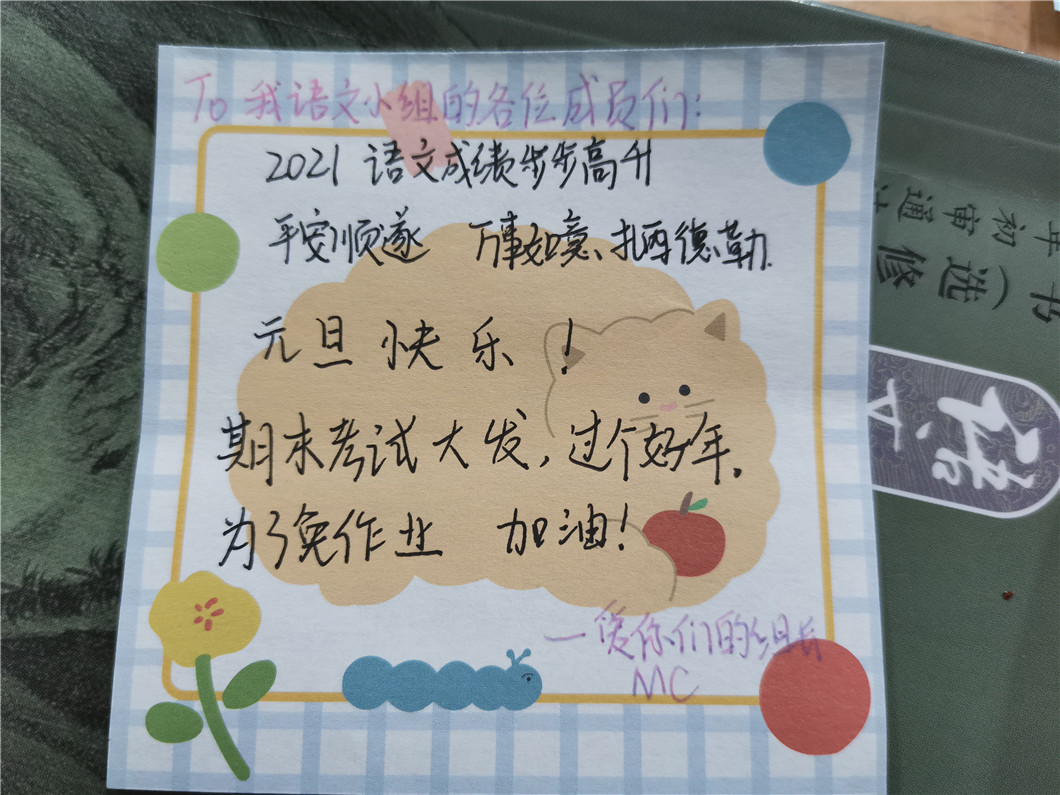 To 我语文小组的各位成员们:
2021 语文成绩步步高升
平安顺遂 万事如意、扎西德勒.
元旦快乐!
期末考试大发,过个好年.
为了免作业 加油!
—爱你们的组长
MC
初审通
书(选修
语